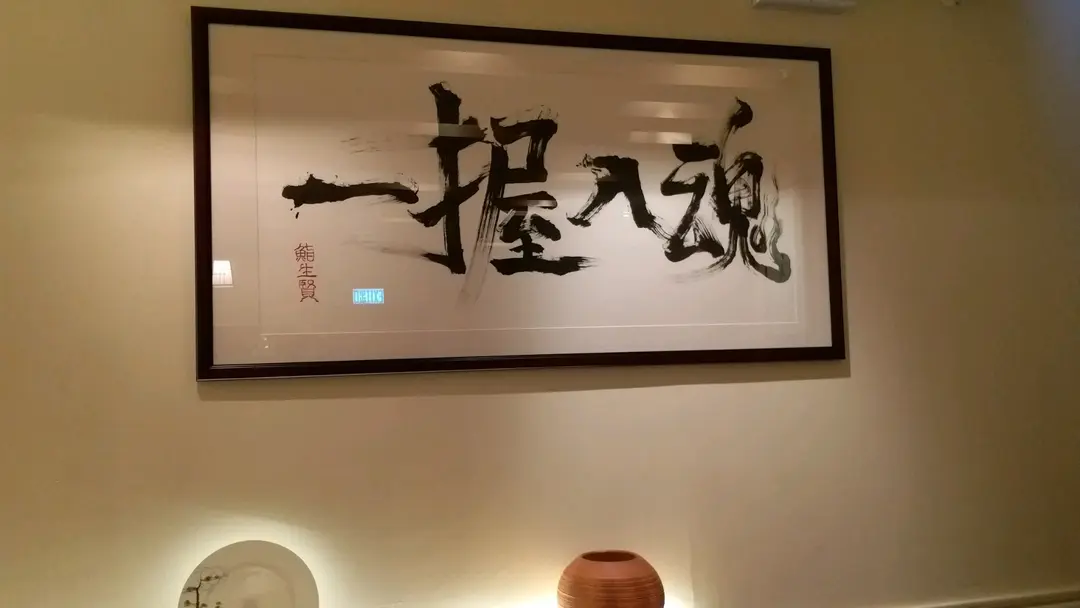 一握入魂
鮨生賢